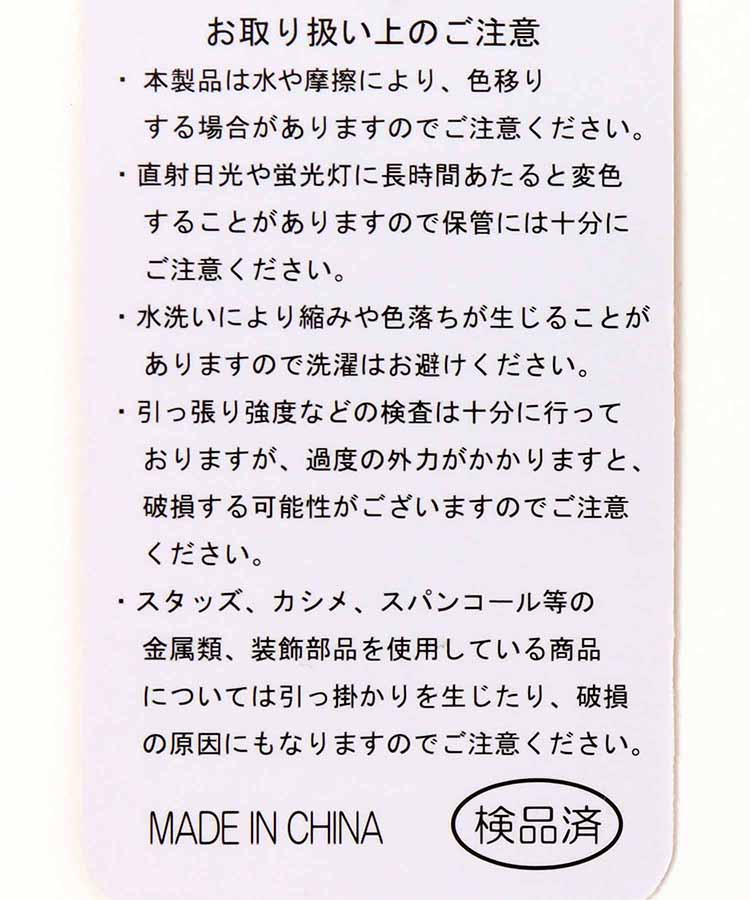 お取り扱い上のご注意
・本製品は水や摩擦により、色移り
する場合がありますのでご注意ください。
・直射日光や蛍光灯に長時間あたると変色
することがありますので保管には十分に
ご注意ください。
・水洗いにより縮みや色落ちが生じることが
ありますので洗濯はお避けください。
・引っ張り強度などの検査は十分に行って
おりますが、過度の外力がかかりますと、
破損する可能性がございますのでご注意
ください。
・スタッズ、カシメ、スパンコール等の
金属類、装飾部品を使用している商品
については引っ掛かりを生じたり、破損
の原因にもなりますのでご注意ください。
MADE IN CHINA
検品済